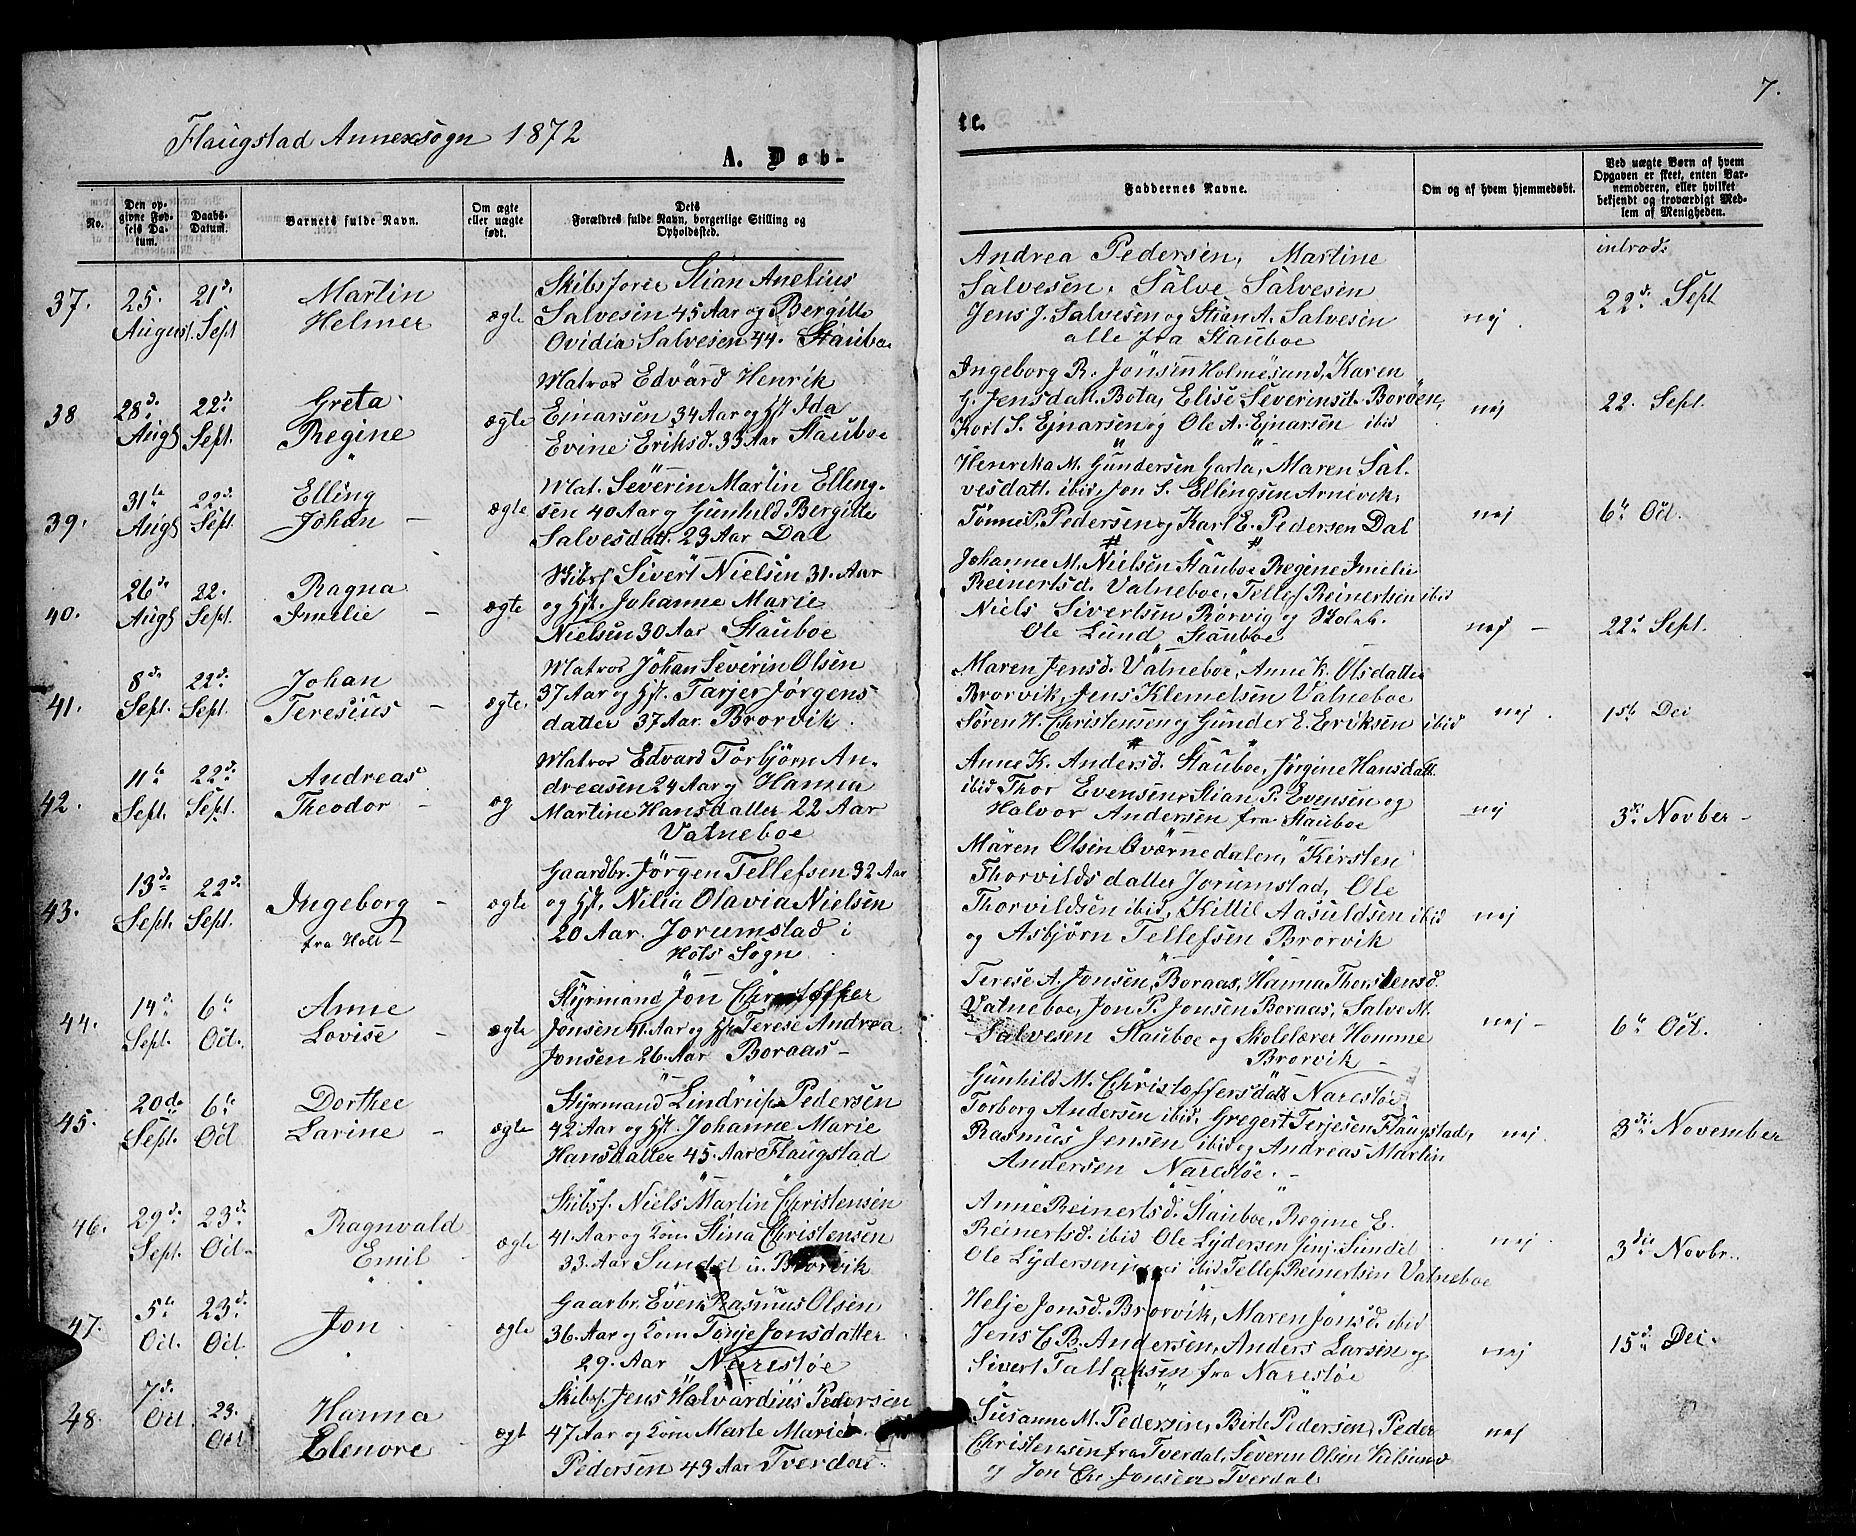 Flaugstad Annexsogn 1872
A. Døb-
No.
Den op-
givne Fød-
sels Da-
tum.
Daabs-
Datum.
Barnets fulde Navn.
Om ægte
eller uægte
født.
Dets
Forældres fulde Navn, borgerlige Stilling og
Opholdssted.
37.
25.
August.
21d.
Sept
Martin
Helmer
ægte
Stian Anelius
Salvesen 45 Aar og Bergitte
Ovidia Salvesen 44. Stauboe
38
28d.
Augst
22d.
Sept.
Greta
Regine
ægte
Matros Edvard Henrik
Ejnarsen 34 Aar og Hst. Ida
Evine Eriksd. 33 Aar Stauboe
39.
31te
Augst
22d.
Sept.
Elling
Johan -
ægte
Mat. Severin Martin Elling-
sen 40 Aar og Gunhild Bergitte
Salvesdatt. 23 Aar Dal
40.
26de
Augst
22.
Sept.
Ragna
Amelie -
ægte
Skibsf. Sivert Nielsen 31. Aar
og Hst. Johanne Marie
Nielsen 30 Aar Stauboe
41.
8de
Sept.
22d.
Sept.
Johan
Teresius -
ægte.
Matros Johan Severin Olsen
37 Aar og Hst. Tarjer Jørgens-
datter 37 Aar. Brorvik.
42.
11te
Sept.
22d.
Sept.
Andreas
Theodor -
æg
Matros Edvard Torbjørn An-
dreasen 24 Aar og Hanna
Martine Hansdatter 22 Aar
Vatneboe
43.
13de
Sept.
22d.
Sept.
Ingeborg -
fra Holt
ægte
Gaardbr. Jörgen Tellefsen 32 Aar
og Hst. Nilia Olavia Nielsen
20 Aar. Jorumstad i
Holts Sogn.
44.
14d.
Sept.
6te
Oct.
Anne
Lovise -
ægte
Styrmand Jon Christoffer
Jonsen 41. Aar og Hst. Terese Andrea
Jonsen 26. Aar Boraas -
45.
20de
Sept.
6te
Oct
Dorthee
Larine -
ægte
Styrmand Lindrup Pedersen
42 Aar og Hst. Johanne Marie
Hansdatter 45. Aar Flaugstad
46.
29d.
Sept.
23d.
Oct.
Ragnvald
Emil -
ægte
Skibsf. Niels Martin Christensen
41. Aar og Kone Stina Christensen
33. Aar Sundet u. Brorvik
47.
5te
Oct.
23d.
Oct
Jon
ægte
Gaarbr. Even Rasmus Olsen
36. Aar og Kone Tonje Jonsdatter
29. Aar Narestøe
48.
7d.
Oct
23.
Oct
Hanna
Elenore
ægt
Skibsf. Jens Halvardius Pedersen
47 Aar og Kone Marte Marie
Pedersen 43 Aar Tverdal.
7.
te.
Faddernes Navne.
Om og af hvem hjemmedøbt.
Ved uægte Børn af hvem
Opgaven er skeet, enten Bar-
nemoderen, eller hvilket
bekjendt og troværdigt Med-
lem af Menigheden.
introd.
Andrea Pedersen, Martine
Salvesen, Salve Salvesen
Jens J. Salvesen og Stian A. Salvesen
alle fra Stauboe
nej.
22d. Sept
Ingeborg R. Jönsen Holmesund, Karen
G. Jensdatt. Bota, Elise Severinsdt. Boröen,
Karl S. Ejnarsen og Ole A. Ejnarsen ibid
nej
22. Sept.
Henrika M. Gundersen Garta, Maren Sal-
vesdatt. ibid, Jon S. Ellingsen Arnevik,
Tønne P. Pedersen og Karl E. Pedersen Dal
nej
6te Oct.
Johanne M. Nielsen Stauboe Regine Amelie
Reinertsd. Vatneboe, Tellef Reinertsen ibid
Niels Sivertsen Rørvig og Skolel.
Ole Lund Stauboe
nej -
22d Sept.
Maren Jensd. Vatneboe, Anne K. Olsdatter
Brorvik, Jens Klemetsen Vatneboe
Søren H. Christensen og Gunder E. Eriksen ibid
nej.
1ste Dec
Anne K. Andersd. Stauboe, Jørgine Hansdatt.
ibid Thor Evensen, Stian P. Evensen og
Halvor Andersen fra Stauboe
nej
3die Novber -
Maren Olsen Qværnedalen, Kirsten
Thorvildsdatter Jorumstad, Ole
Thorvildsen ibid, Kittil Aasuldsen ibid
og Asbjørn Tellefsen Brorvik
nej
Terese A. Jonsen, Boraas, Hanna Thorstensd.
Vatneboe, Jon P. Jonsen Boraas, Salve M.
Salvesen Stauboe og Skolelærer Homme
Brorvik -
nej -
6te Oct.
Gunhild M. Christoffersdatt Narestøe,
Torborg Andersen ibid, Gregert Terjesen Flaugstad,
Rasmus Jensen ibid og Andreas Martin
Andersen Narestøe. -
nej.
3die November
Anne Reinertsd. Stauboe, Regine E.
Reinertsd. ibid Ole Lydersen senj. Sundet
Ole Lydersen ibid Tellef Reinertsen Vatneboe
nej.
3die Novbr.
Helje Jonsd. Brorvik, Maren Jonsd. ibid
Jens C. B. Andersen, Anders Larsen og
Sivert Tallaksen fra Narestøe
nej
15d. Dec.
Susanne M. Pedersen, Birte Pedersen, Peder
Christensen fra Tverdal, Severin Olsen Kalsund
og Jon Chr Jonsen Tverdal
nej